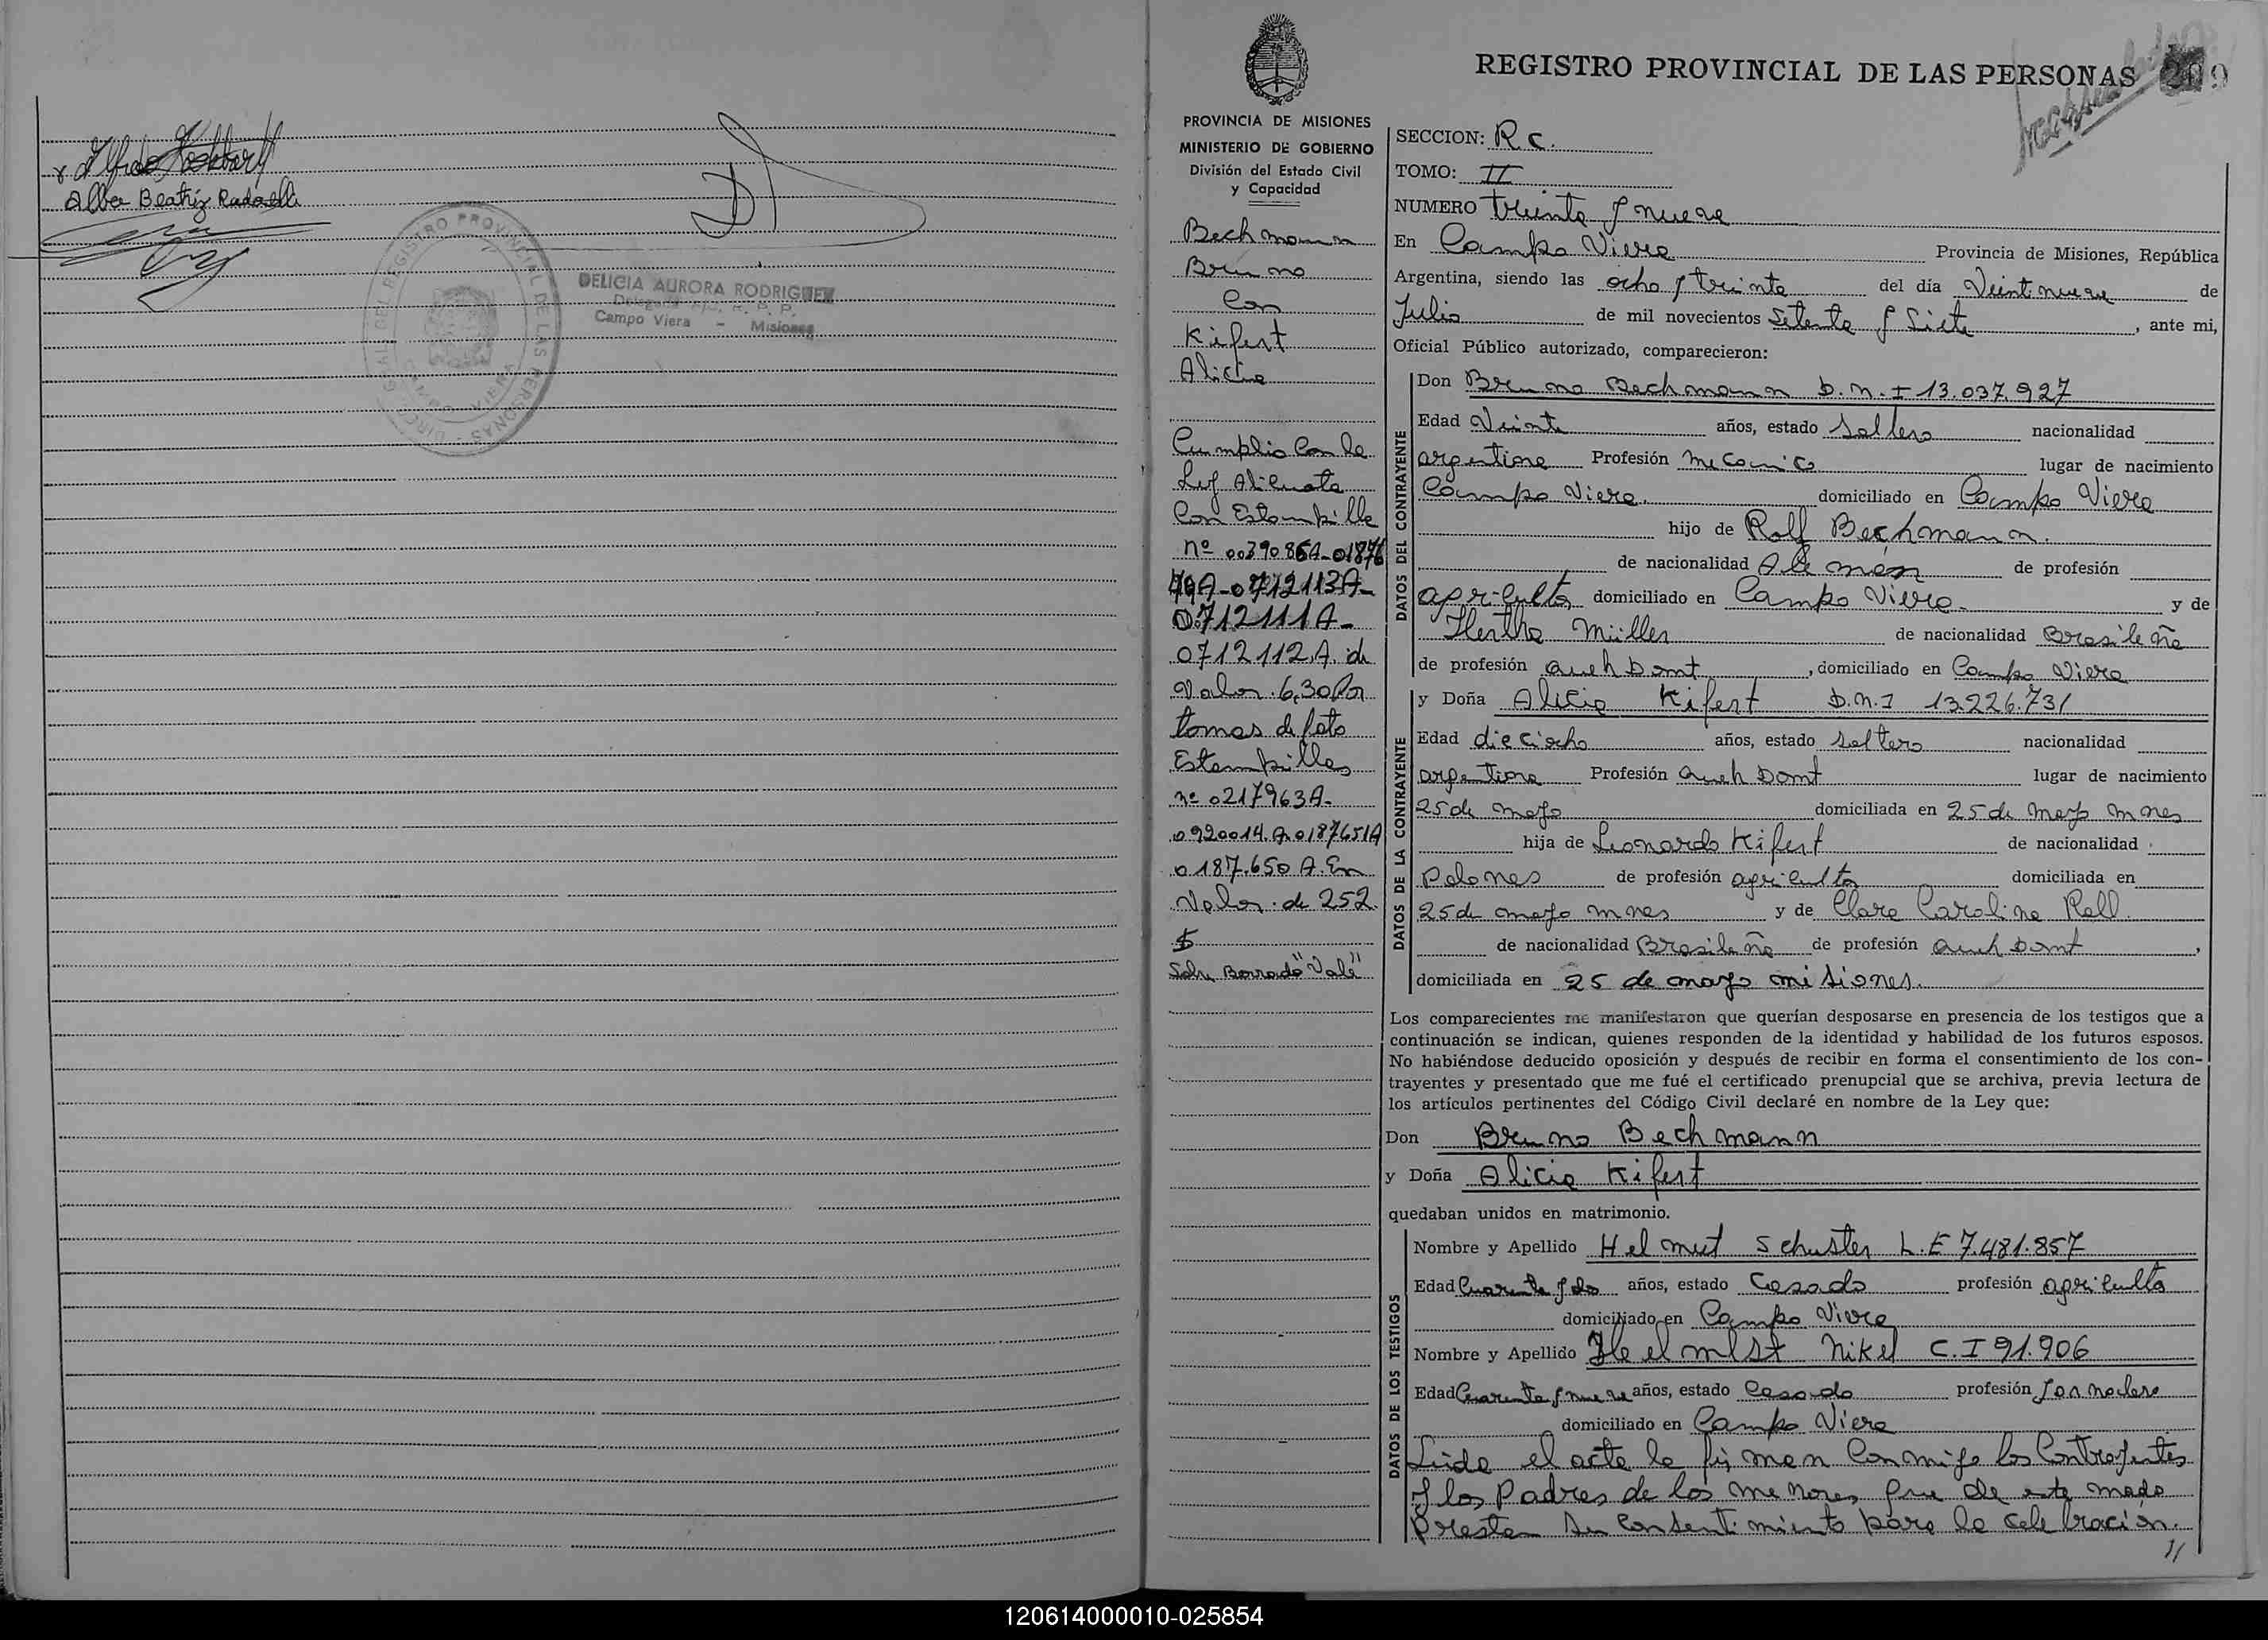 Alba Beatriz Radaelli
DIREC GRAL DEL REGISTRO PROVINCIAL DE LAS PERSONAS
CAMPO VIERA
DELICIA AURORA RODRIGUEZ
Delegada R. P. P.
Campo Viera - Misiones
REGISTRO PROVINCIAL DE LAS PERSONAS
PROVINCIA DE MISIONES
MINISTERIO DE GOBIERNO
División del Estado Civil
y Capacidad
Bechmann
Bruno
Con
Kifert
Alicia
Cumplio Con la
Ley Alicuota
Con Estampilla
nº 00390864-01876
49A-0712113A-
0712111A-
0712112.A. de
Valor 6,30 Por
tomas de foto
Estampillas
nº 0217963A-
0920014.A.0187651A
0187.650 A. En
Valor: de 252.
$
Sobre Borrado "Vale"
SECCION: R c.
TOMO: II
NUMERO treinta y nueve
En Campo Viera Provincia de Misiones, República
Argentina, siendo las ocho y treinta del día Veintinueve de
Julio de mil novecientos Setenta y Siete, ante mi,
Oficial Público autorizado, comparecieron:
DATOS DEL CONTRAYENTE
Don Bruno Bechmann D.N.I 13.037.927
Edad Veinte años, estado Soltero nacionalidad
argentina Profesión mecanico lugar de nacimiento
Campo Viera. domiciliado en Campo Viera
hijo de Rolf Bechmann.
de nacionalidad Aleman de profesión
agricultor domiciliado en Campo Viera- y de
Hertha Müller de nacionalidad Brasileña
de profesión queh Domt, domiciliado en Campo Viera
DATOS DE LA CONTRAYENTE
y Doña Alicia Kifert D.N.I 13226.731
Edad dieciocho años, estado soltera nacionalidad
argentina Profesión queh Domt lugar de nacimiento
25 de mayo domiciliada en 25 de mayo mnes
hija de Leonardo Kifert de nacionalidad
Polones de profesión agricultor domiciliada en
25 de mayo mnes y de Clara Carolina Roll.
de nacionalidad Brasileña de profesión queh Domt,
domiciliada en 25 de mayo misiones.
Los comparecientes me manifestaron que querían desposarse en presencia de los testigos que a
continuación se indican, quienes responden de la identidad y habilidad de los futuros esposos.
No habiéndose deducido oposición y después de recibir en forma el consentimiento de los con-
trayentes y presentado que me fué el certificado prenupcial que se archiva, previa lectura de
los artículos pertinentes del Código Civil declaré en nombre de la Ley que:
Don Bruno Bechmann
y Doña Alicia Kifert
quedaban unidos en matrimonio.
DATOS DE LOS TESTIGOS
Nombre y Apellido Helmut Schuster L.E 7.481.857
Edad Cuarenta y dos años, estado Casado profesión agricultor
domiciliado en Campo Viera
Nombre y Apellido Nikel C.I 91.906
Edad Cuarenta y nueve años, estado Casado profesión Jornalero
domiciliado en Campo Viera
Leida el acta la firman Conmigo los Contrayentes
y los Padres de los menores que de este modo
Prestan su Consentimiento para la celebración.
//
120614000010-025854